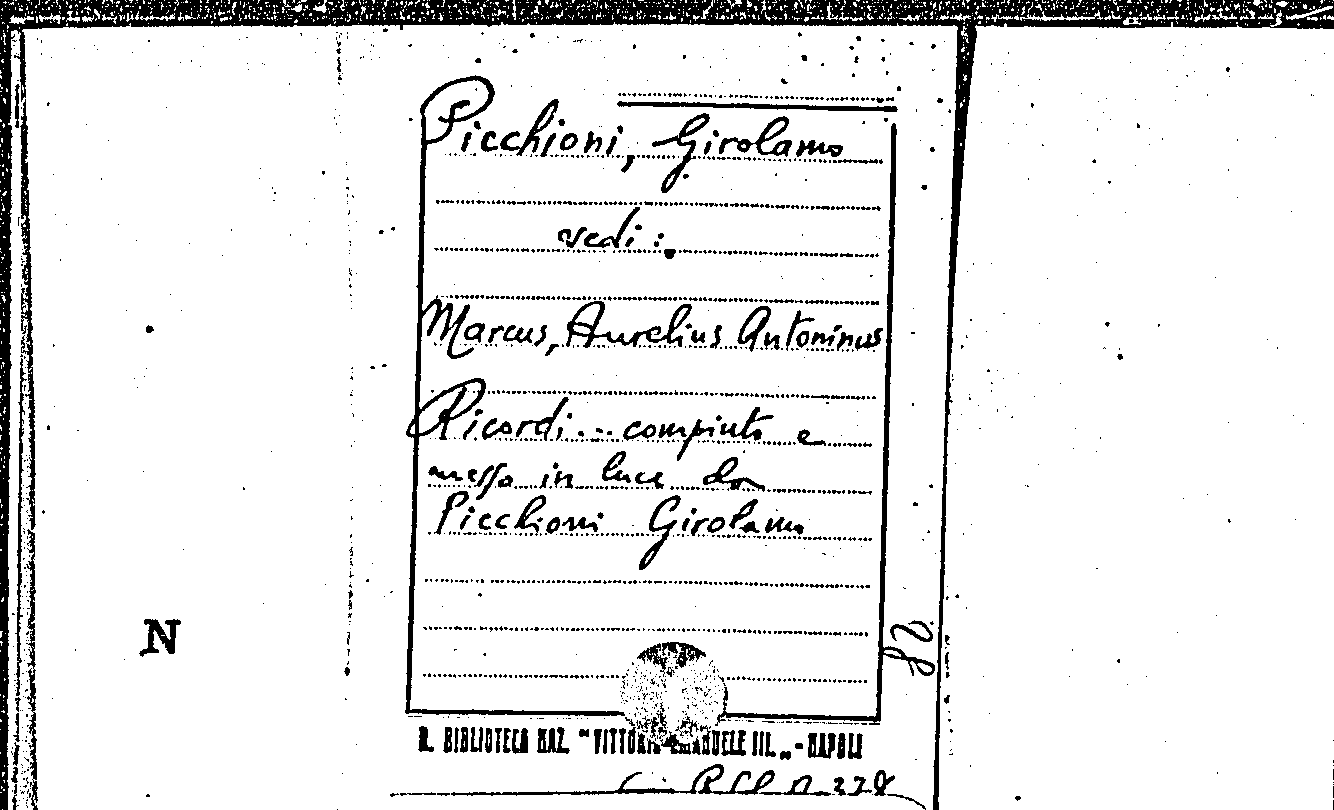 Picchioni, Girolamo
vedi:
Marcus, Aurelius Antoninus
Ricordi... compiuto e
messo in luce da
Picchioni Girolamo
N
82
R. BIBLIOTECA NAZ. "VITTORIO EMANUELE III." - NAPOLI